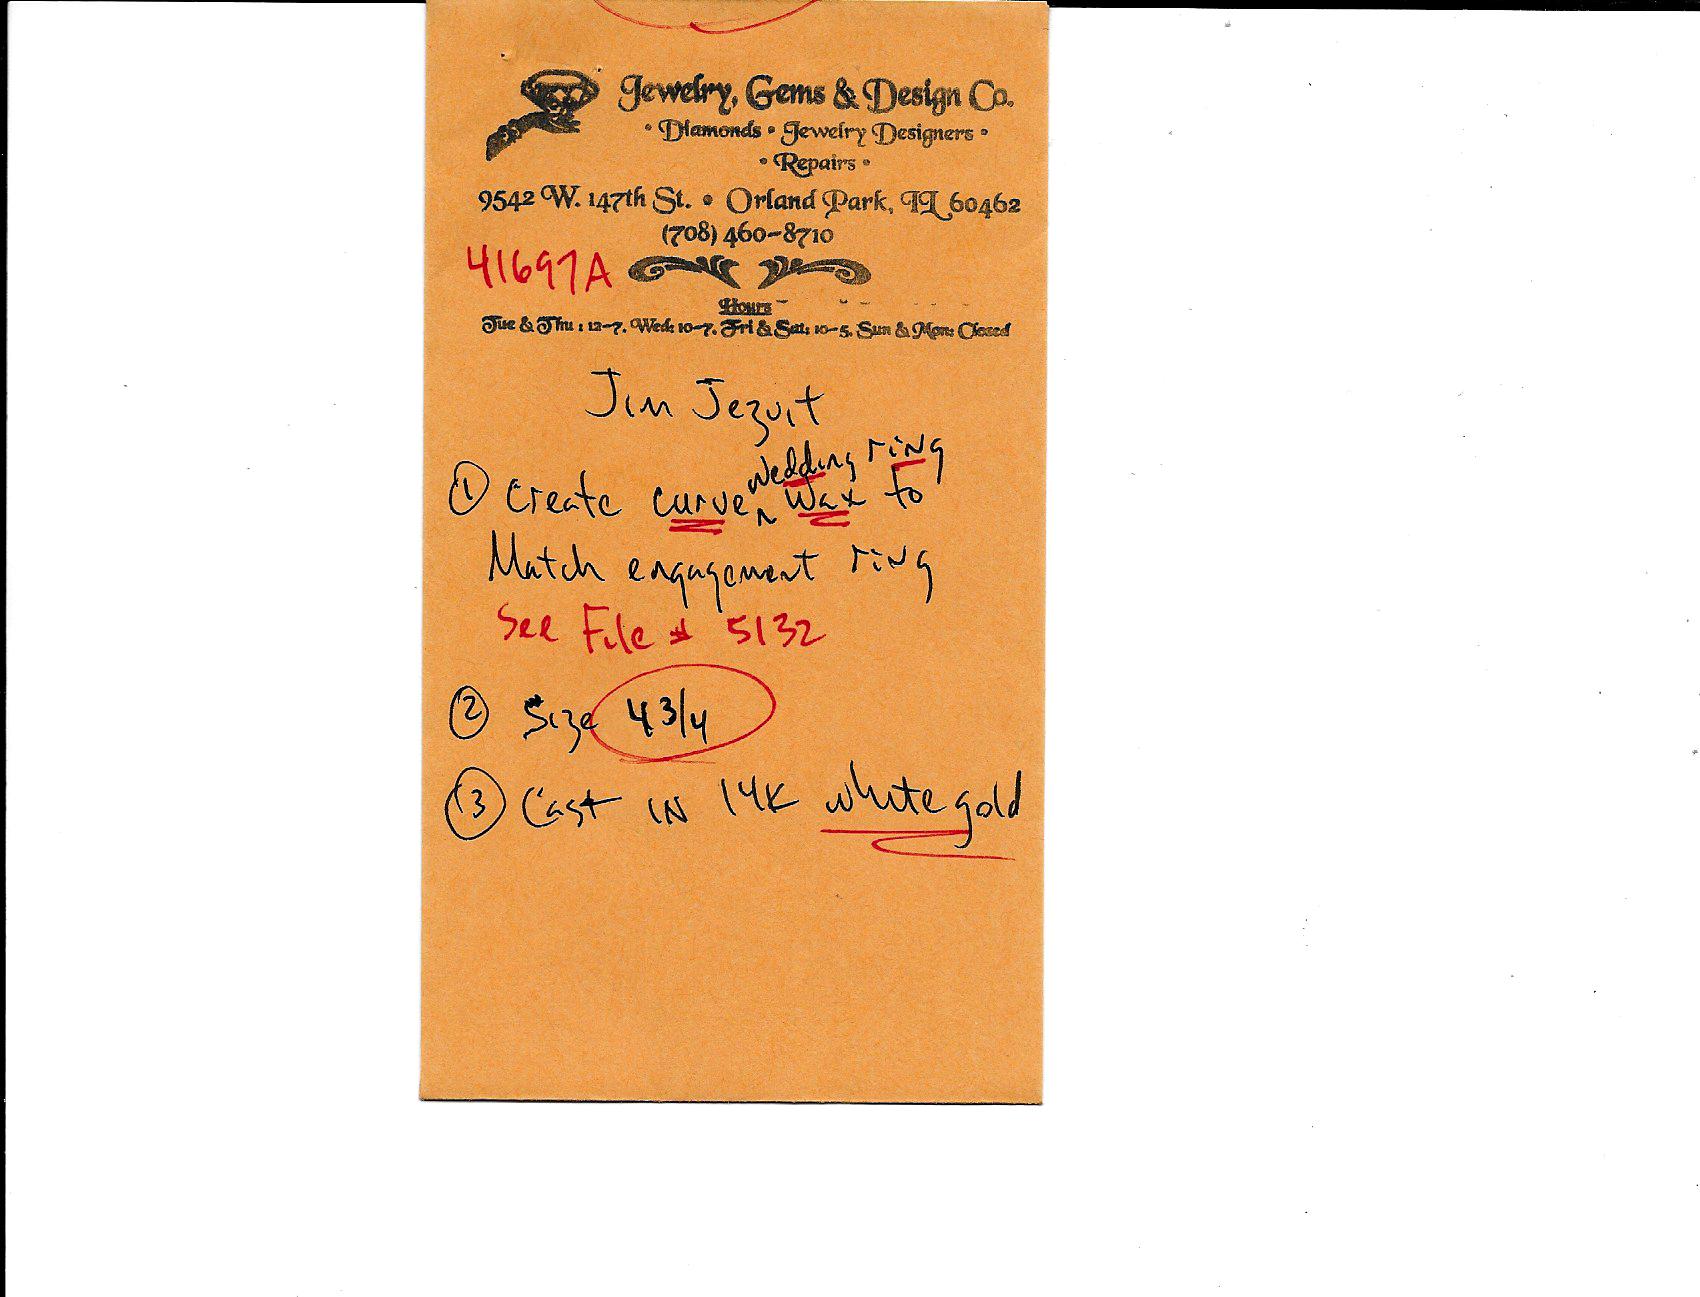 Jewelry, Gems & Design Co.
• Diamonds • Jewelry Designers •
• Repairs •
9542 W. 147th St. • Orland Park, IL 60462
(708) 460-8710
41697A
Hours
Tue & Thu : 12-7. Wed: 10-7. Fri & Sat: 10-5. Sun & Mon: Closed
Jim Jezuit
wedding ring
① Create curve ^ wax to
Match engagement ring
See File # 5132
② Size 4 3/4
③ Cast in 14K white gold